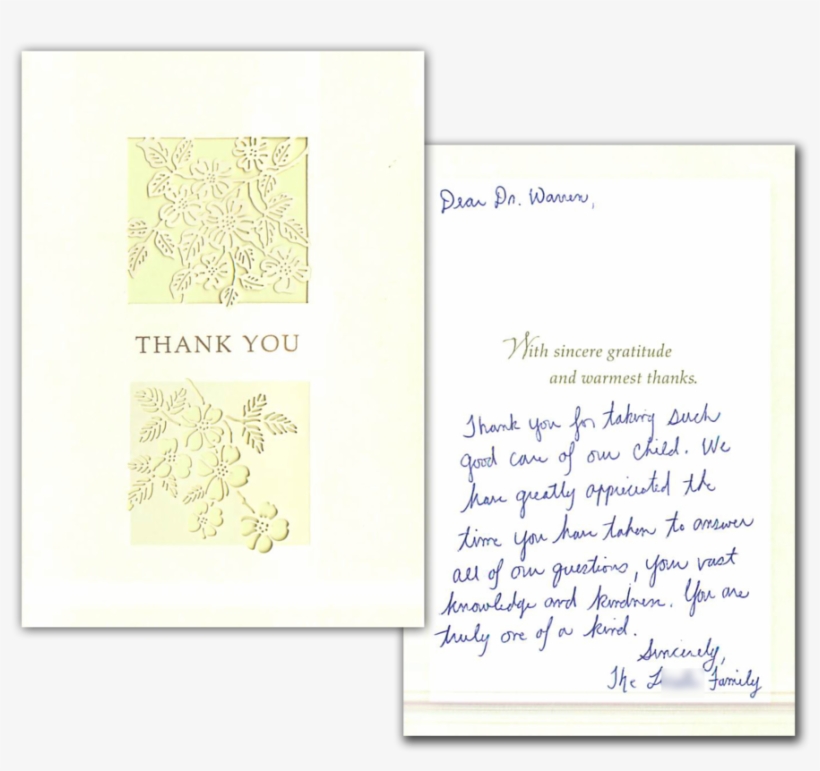 THANK YOU
Dear Dr. Warren,
With sincere gratitude
and warmest thanks.
Thank you for taking such
good care of our child. We
have greatly appriciated the
time you have taken to answer
all of our questions, your vast
knowledge and kindness. You are
truly one of a kind.
Sincerely,
The Family